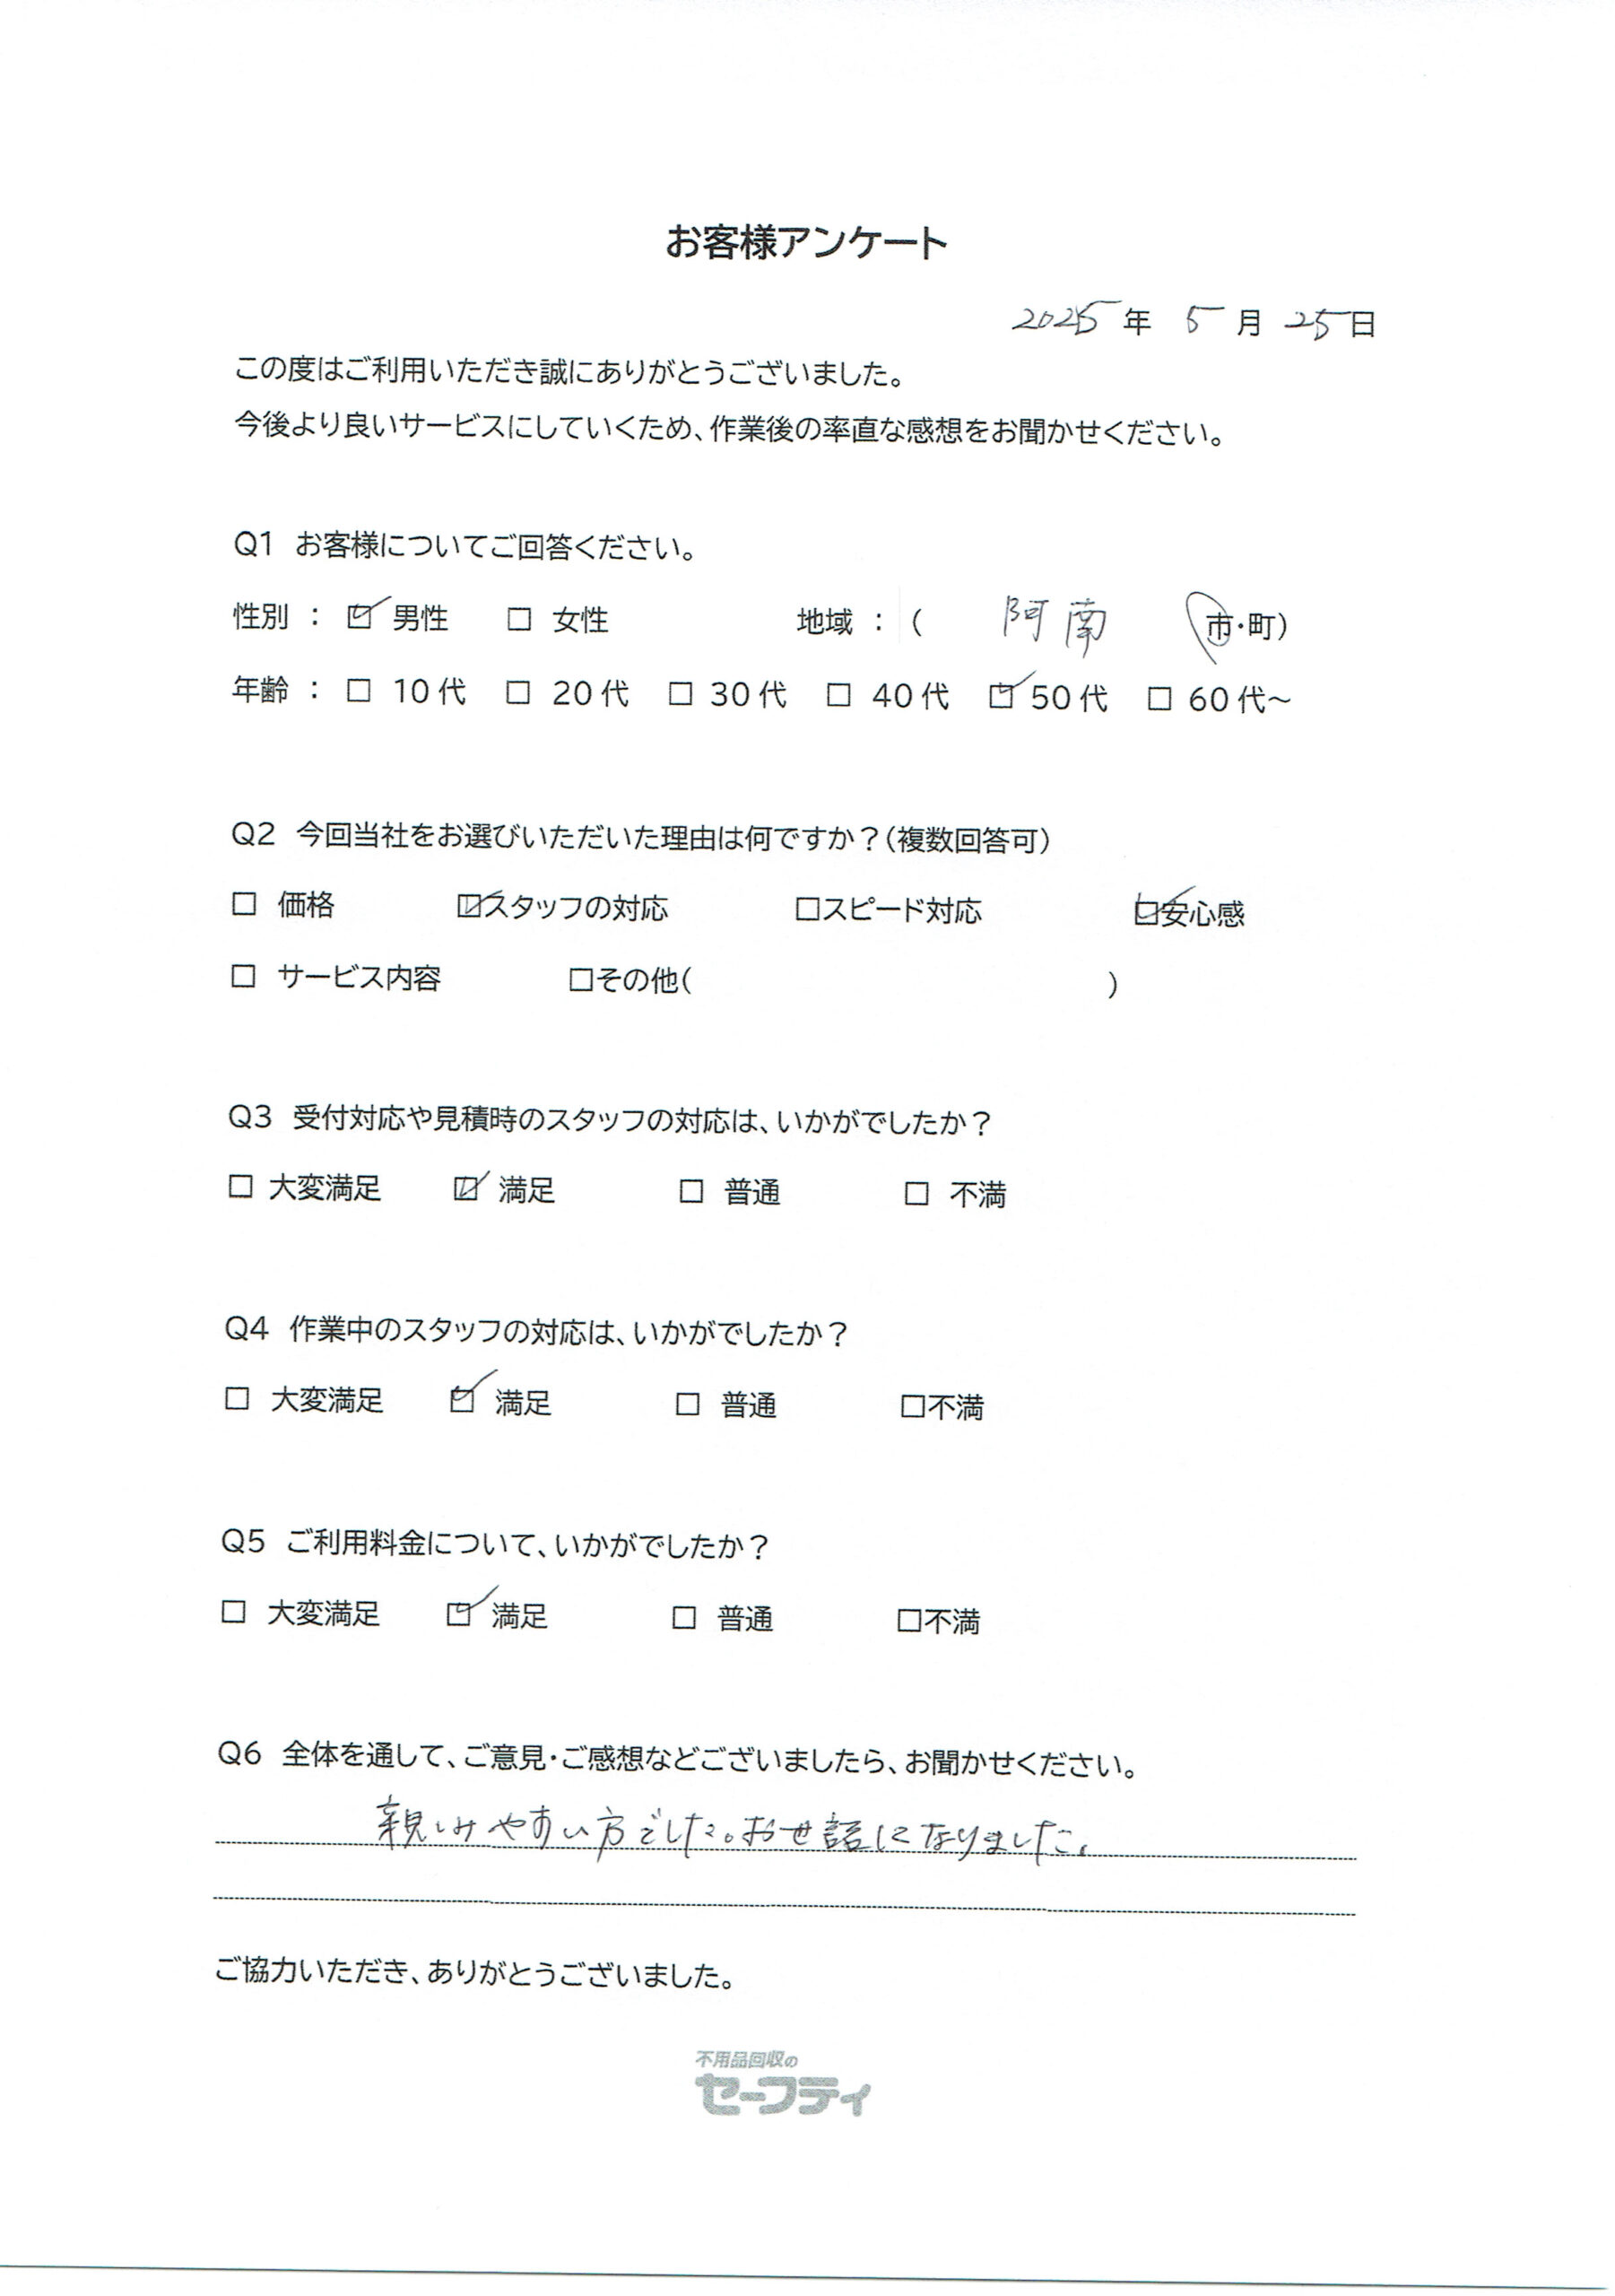 お客様アンケート
2025年 5月 25日
この度はご利用いただき誠にありがとうございました。
今後より良いサービスにしていくため、作業後の率直な感想をお聞かせください。
Q1 お客様についてご回答ください。
性別 : ☑ 男性 □ 女性 地域 : ( 阿南 市・町)
年齢 : □ 10代 □ 20代 □ 30代 □ 40代 ☑ 50代 □ 60代~
Q2 今回当社をお選びいただいた理由は何ですか?(複数回答可)
□ 価格 ☑スタッフの対応 □スピード対応 ☑安心感
□ サービス内容 □その他( )
Q3 受付対応や見積時のスタッフの対応は、いかがでしたか?
□ 大変満足 ☑ 満足 □ 普通 □ 不満
Q4 作業中のスタッフの対応は、いかがでしたか?
□ 大変満足 ☑ 満足 □ 普通 □不満
Q5 ご利用料金について、いかがでしたか?
□ 大変満足 ☑ 満足 □ 普通 □不満
Q6 全体を通して、ご意見・ご感想などございましたら、お聞かせください。
親しみやすい方でした。お世話になりました。
ご協力いただき、ありがとうございました。
不用品回収の
セーフティ